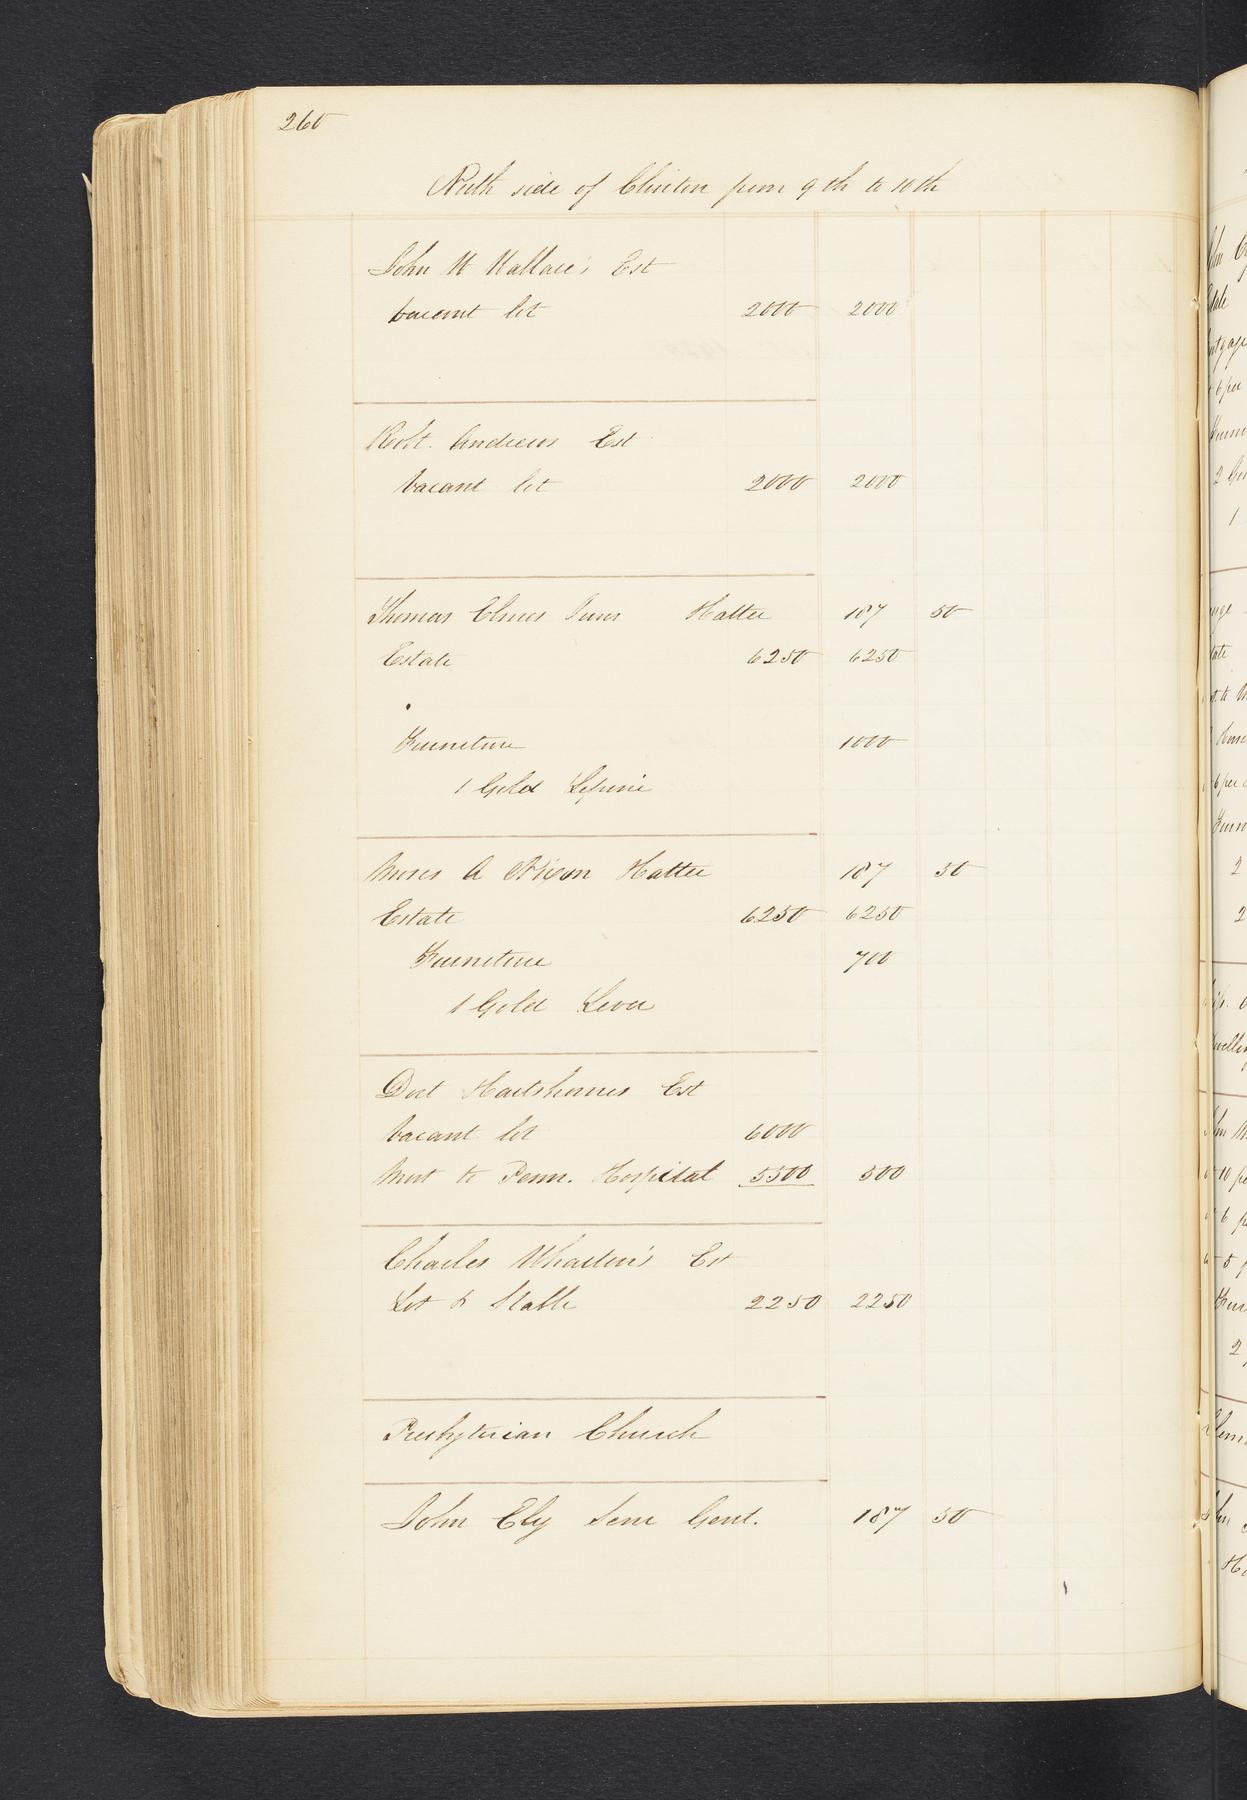 260
North side of Clinton from 9th to 10th
John W Wallace's Est
vacant lot 2000 2000
Robt. Andrews Est
vacant lot 2000 2000
Thomas Elmes Junr Hatter 187 50
Estate 6250 6250
Furniture 1000
1 Gold Lepine
Moses A Dixon Hatter 187 50
Estate 6250 6250
Furniture 700
1 Gold Lever
Doct Hartshornes Est
vacant lot 6000
Mort to Penn. Hospital 5500 500
Charles Wharton's Est
Lot & Stable 2250 2250
Presbyterian Church
John Ely Senr Gent. 187 50